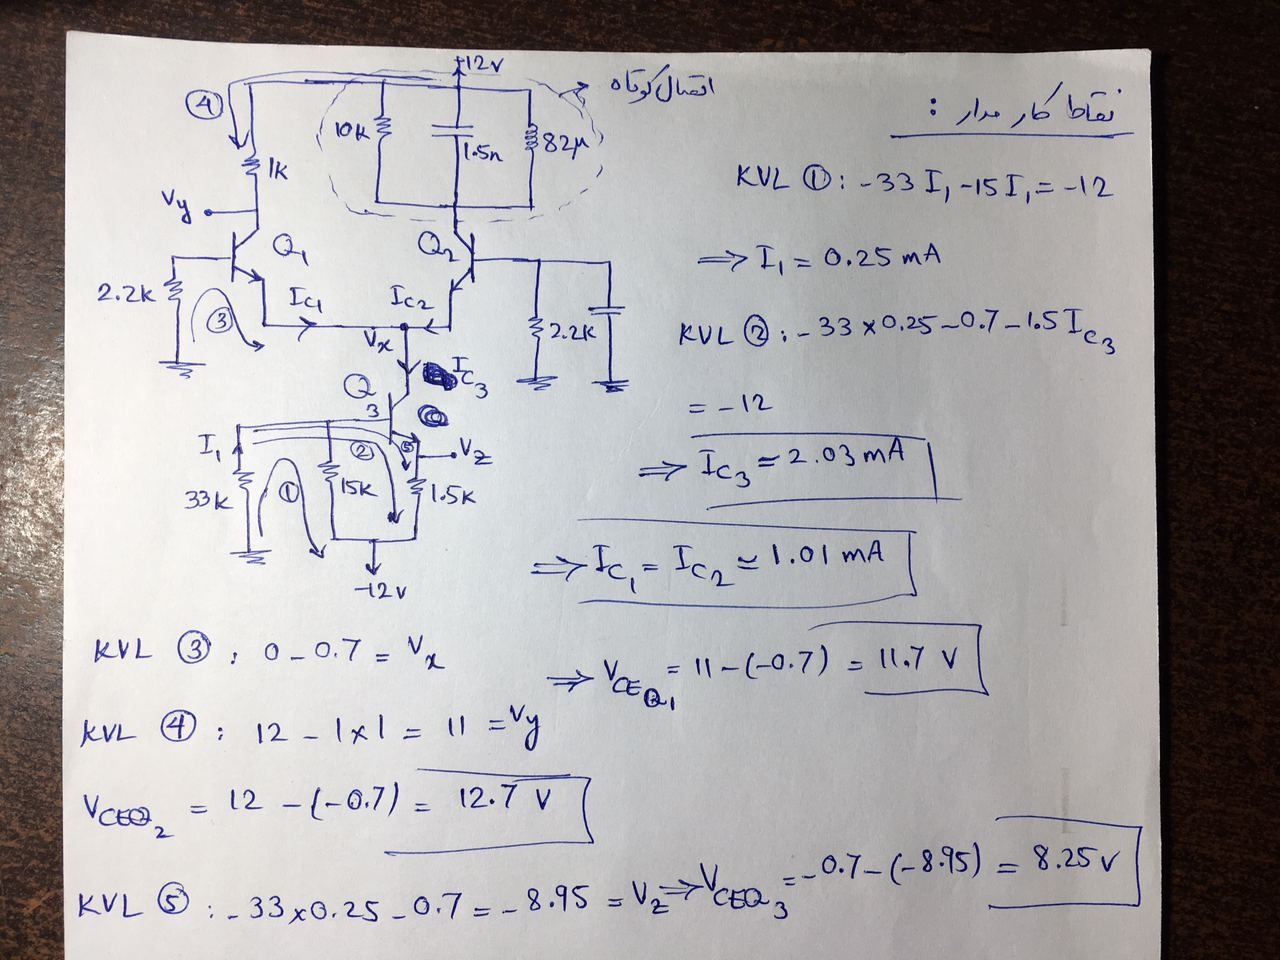 نقاط کار مدار :
+12v
اتصال کوتاه
④
10k
1.5n
82μ
1k
Vy
Q1
Q2
2.2k
③
IC1
IC2
Vx
2.2k
IC3
Q3
I1
②
⑤
Vz
33k
①
15k
1.5k
-12v
KVL ①: -33 I1 -15 I1 = -12
⇒ I1 = 0.25 mA
KVL ②: -33 × 0.25 - 0.7 - 1.5 IC3
= -12
⇒ IC3 ≃ 2.03 mA
⇒ IC1 = IC2 ≃ 1.01 mA
KVL ③ : 0 - 0.7 = Vx
⇒ VCEQ1 = 11 - (-0.7) = 11.7 V
KVL ④ : 12 - 1×1 = 11 = Vy
VCEQ2 = 12 - (-0.7) = 12.7 V
KVL ⑤ : -33×0.25 - 0.7 = -8.95 = Vz ⇒ VCEQ3 = -0.7 - (-8.95) = 8.25 v